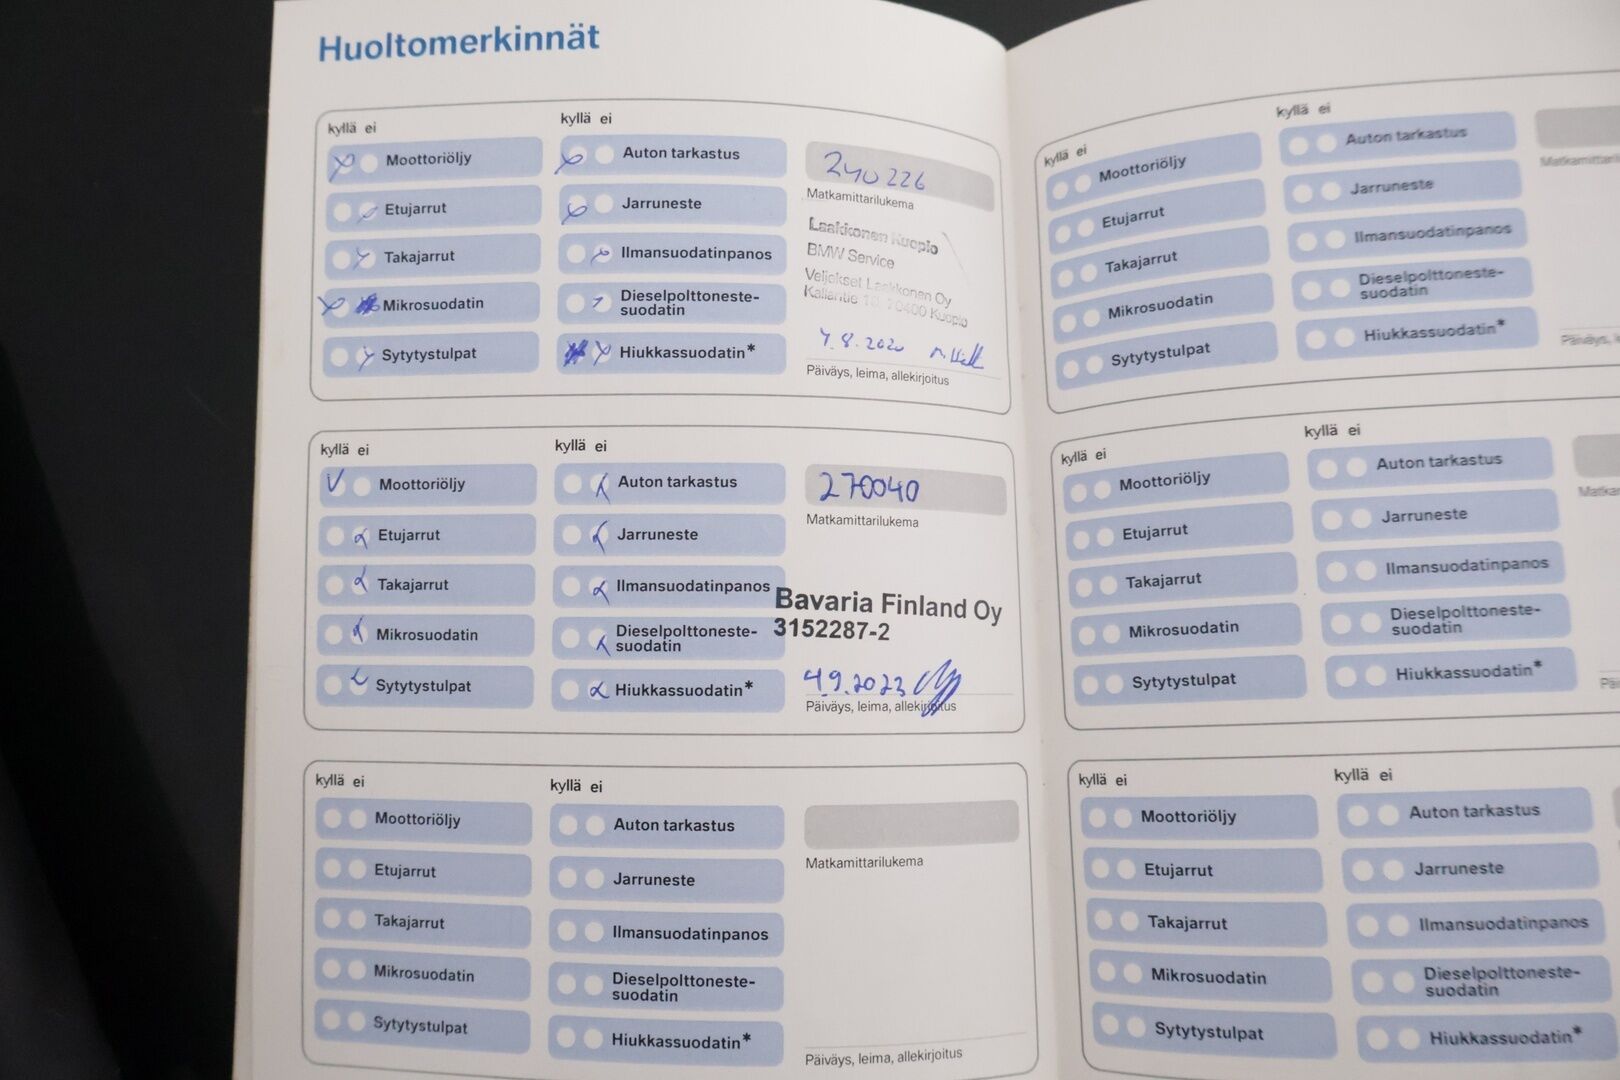 Huoltomerkinnät
kyllä ei
Moottoriöljy
Etujarrut
Takajarrut
Mikrosuodatin
Sytytystulpat
kyllä ei
Auton tarkastus
Jarruneste
Ilmansuodatinpanos
Dieselpolttoneste-
suodatin
Hiukkassuodatin*
240226
Matkamittarilukema
Laakkonen Kuopio
BMW Service
Veljekset Laakkonen Oy
Kallantie 70400 Kuopio
.8.2020
Päiväys, leima, allekirjoitus
kyllä ei
Moottoriöljy
Etujarrut
Takajarrut
Mikrosuodatin
Sytytystulpat
kyllä ei
Auton tarkastus
Jarruneste
Ilmansuodatinpanos
Dieselpolttoneste-
suodatin
Hiukkassuodatin*
270040
Matkamittarilukema
Bavaria Finland Oy
3152287-2
4.9.2023
Päiväys, leima, allekirjoitus
kyllä ei
Moottoriöljy
Etujarrut
Takajarrut
Mikrosuodatin
Sytytystulpat
kyllä ei
Auton tarkastus
Jarruneste
Ilmansuodatinpanos
Dieselpolttoneste-
suodatin
Hiukkassuodatin*
Matkamittarilukema
Päiväys, leima, allekirjoitus
kyllä ei
Moottoriöljy
Etujarrut
Takajarrut
Mikrosuodatin
Sytytystulpat
kyllä ei
Auton tarkastus
Jarruneste
Ilmansuodatinpanos
Dieselpolttoneste-
suodatin
Hiukkassuodatin*
kyllä ei
Moottoriöljy
Etujarrut
Takajarrut
Mikrosuodatin
Sytytystulpat
kyllä ei
Auton tarkastus
Jarruneste
Ilmansuodatinpanos
Dieselpolttoneste-
suodatin
Hiukkassuodatin*
kyllä ei
Moottoriöljy
Etujarrut
Takajarrut
Mikrosuodatin
Sytytystulpat
kyllä ei
Auton tarkastus
Jarruneste
Ilmansuodatinpanos
Dieselpolttoneste-
suodatin
Hiukkassuodatin*